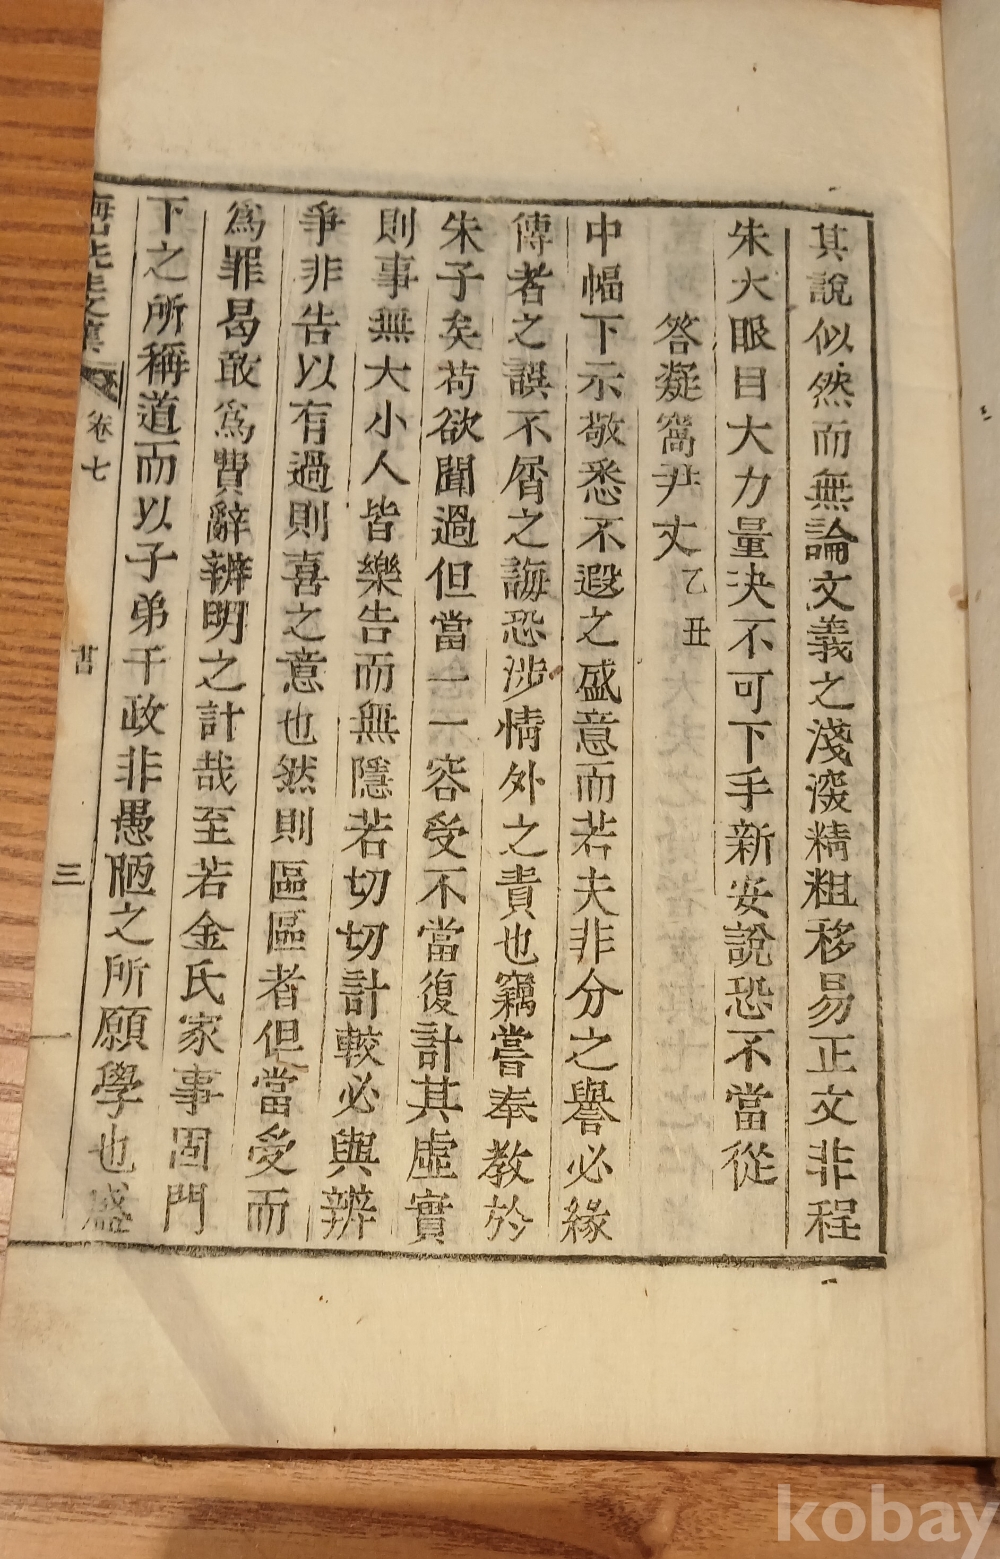 其說似然而無論文義之淺深精粗移易正文非程
朱大眼目大力量决不可下手新安說恐不當從
答凝窩尹丈乙丑
中幅下示敬悉不遐之盛意而若夫非分之譽必緣
傳者之誤不屑之誨恐涉情外之責也竊嘗奉教於
朱子矣苟欲聞過但當一一容受不當復計其虛實
則事無大小人皆樂告而無隱若切切計較必與辨
爭非告以有過則喜之意也然則區區者但當受而
爲罪曷敢爲費辭辨明之計哉至若金氏家事固門
下之所稱道而以子弟干政非愚陋之所願學也盛
先生文集
卷七
書
三
kobay